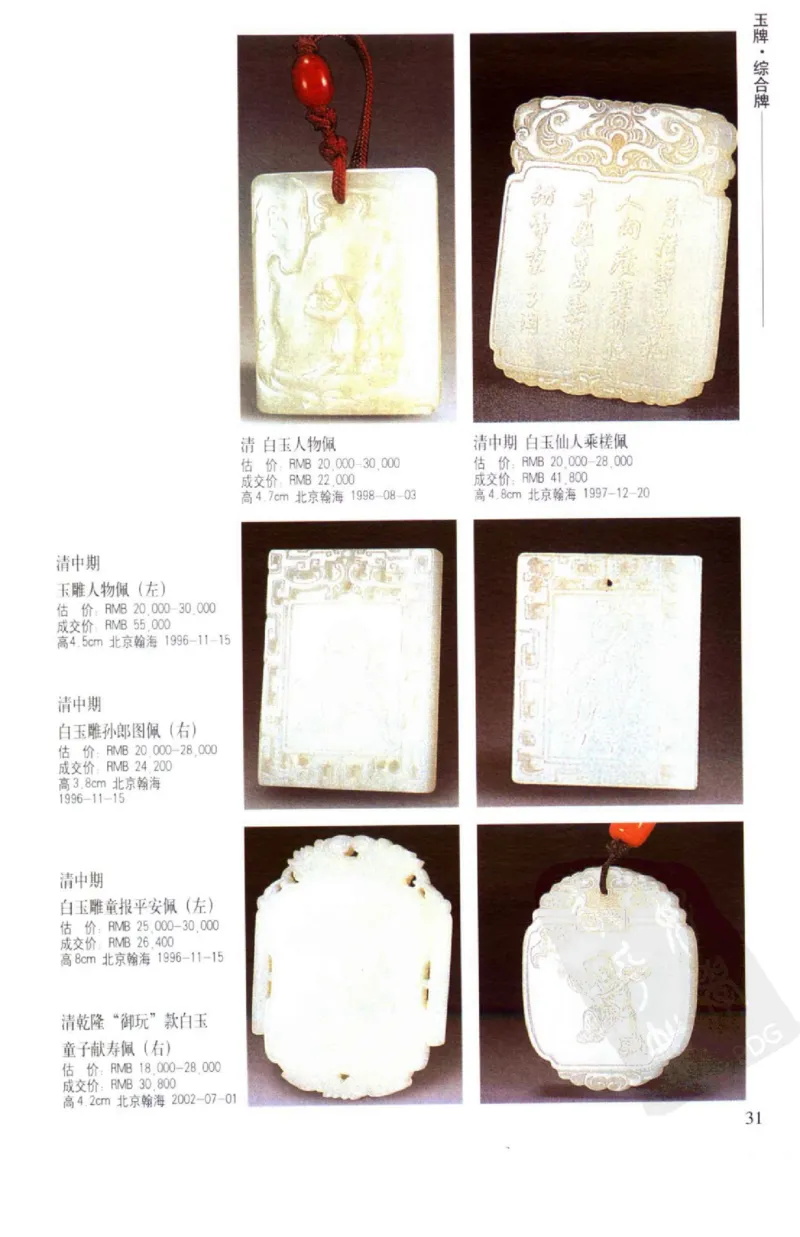 玉牌·综合牌
清 白玉人物佩
估 价: RMB 20,000-30,000
成交价: RMB 22,000
高4.7cm 北京翰海 1998-08-03
清中期 白玉仙人乘槎佩
估 价: RMB 20,000-28,000
成交价: RMB 41,800
高4.8cm 北京翰海 1997-12-20
清中期
玉雕人物佩（左）
估 价: RMB 20,000-30,000
成交价: RMB 55,000
高4.5cm 北京翰海 1996-11-15
清中期
白玉雕孙郎图佩（右）
估 价: RMB 20,000-28,000
成交价: RMB 24,200
高3.8cm 北京翰海
1996-11-15
清中期
白玉雕童报平安佩（左）
估 价: RMB 25,000-30,000
成交价: RMB 26,400
高8cm 北京翰海 1996-11-15
清乾隆“御玩”款白玉
童子献寿佩（右）
估 价: RMB 18,000-28,000
成交价: RMB 30,800
高4.2cm 北京翰海 2002-07-01
31